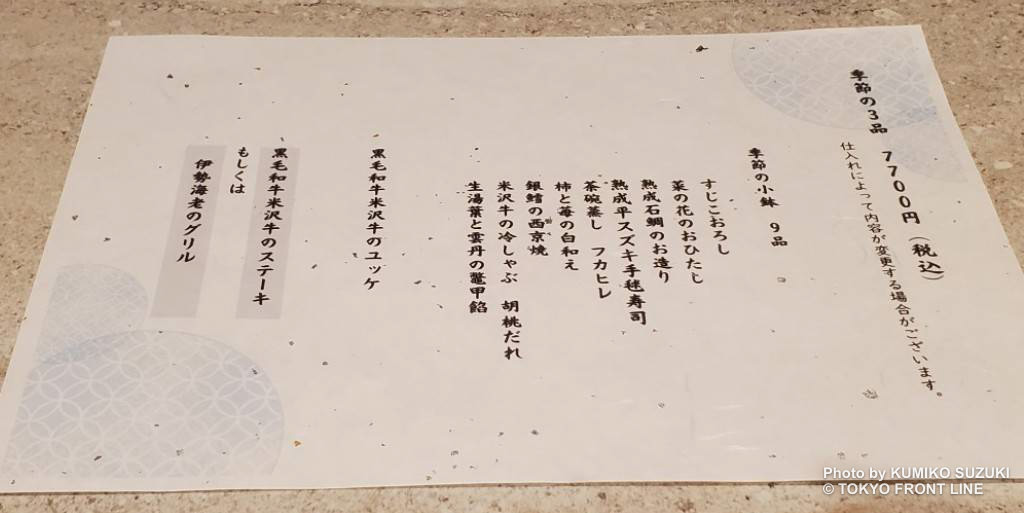 季節の3品 7700円（税込）
仕入れによって内容が変更する場合がございます。
季節の小鉢 9品
すじこおろし
菜の花のおひたし
熟成石鯛のお造り
熟成平スズキ手毬寿司
茶碗蒸し フカヒレ
柿と苺の白和え
銀鱈の西京焼
米沢牛の冷しゃぶ 胡桃だれ
生湯葉と雲丹の鼈甲餡
黒毛和牛米沢牛のユッケ
黒毛和牛米沢牛のステーキ
もしくは
伊勢海老のグリル
Photo by KUMIKO SUZUKI
© TOKYO FRONT LINE